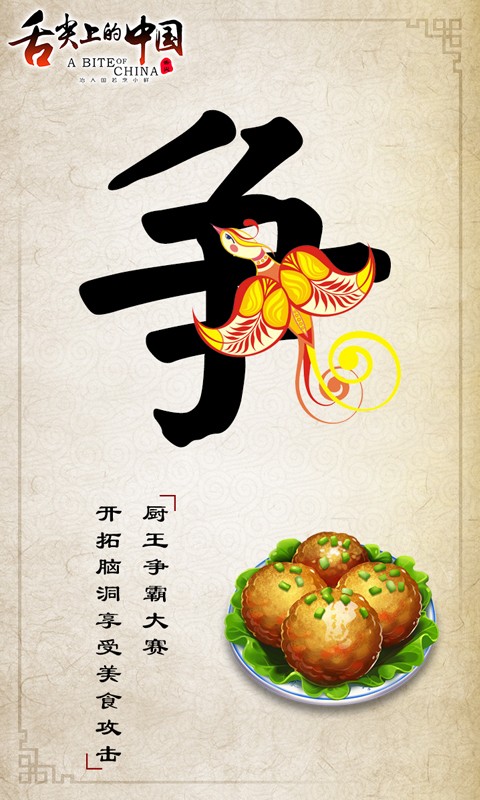 舌尖上的中国
A BITE OF CHINA
争
厨王争霸大赛
开拓脑洞享受美食攻击